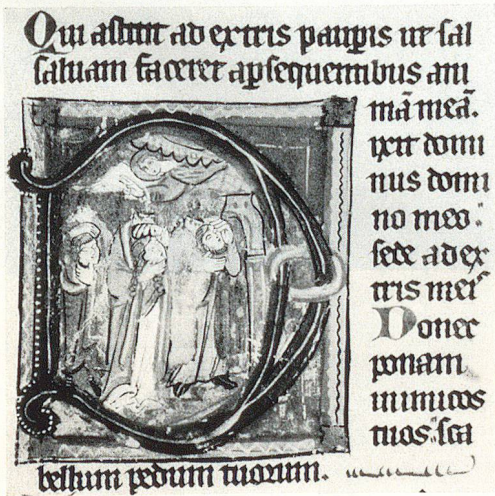 Qui astitit ad extris paup̱is ut sal
saluam faceret a ꝑsequentibus ani
mā meā.
ixit domi
nus domi
no meo:
sede ad ex
tris meis
Donec
ponam
inimicos
tuos: sca
bellum pedum tuorum.